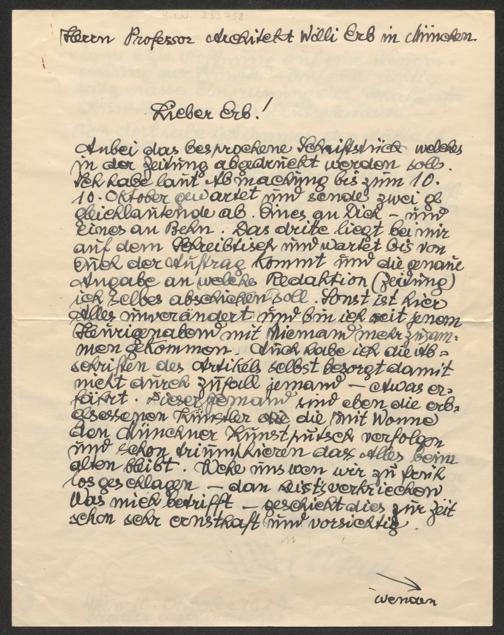 Herrn Professor Architekt Willi Erb in München
Lieber Erb!
Anbei das besprochene Schriftstück welches
in der Zeitung abgedruckt werden soll.
Ich habe laut Abmachung bis zum 10.
10. Oktober gewartet und sende zwei g
gleichlautende ab. Eines an Dich – und
eines an Behn. Das dritte liegt bei mir
auf dem Schreibtisch und wartet bis von
Euch der Auftrag kommt und die genaue
Angabe an welche Redaktion (Zeitung)
ich selbes abschicken soll. Sonst ist hier
Alles unverändert und bin ich seit jenem
Heurigenabend mit Niemand mehr zusam-
men gekommen. Auch habe ich die Ab-
schriften des Artikels selbst besorgt damit
nicht durch Zufall jemand – etwas er-
fährt. Dieser jemand sind eben die erb-
gesessenen Künstler die die mit Wonne
den Münchner Kunstputsch verfolgen
und schon triumphieren das Alles beim
alten bleibt. Wehe uns wen wir zu früh
losgeschlagen – dan heists verkriechen
Was mich betrifft – geschieht dies zur Zeit
schon sehr ernsthaft und vorsichtig.
wenden